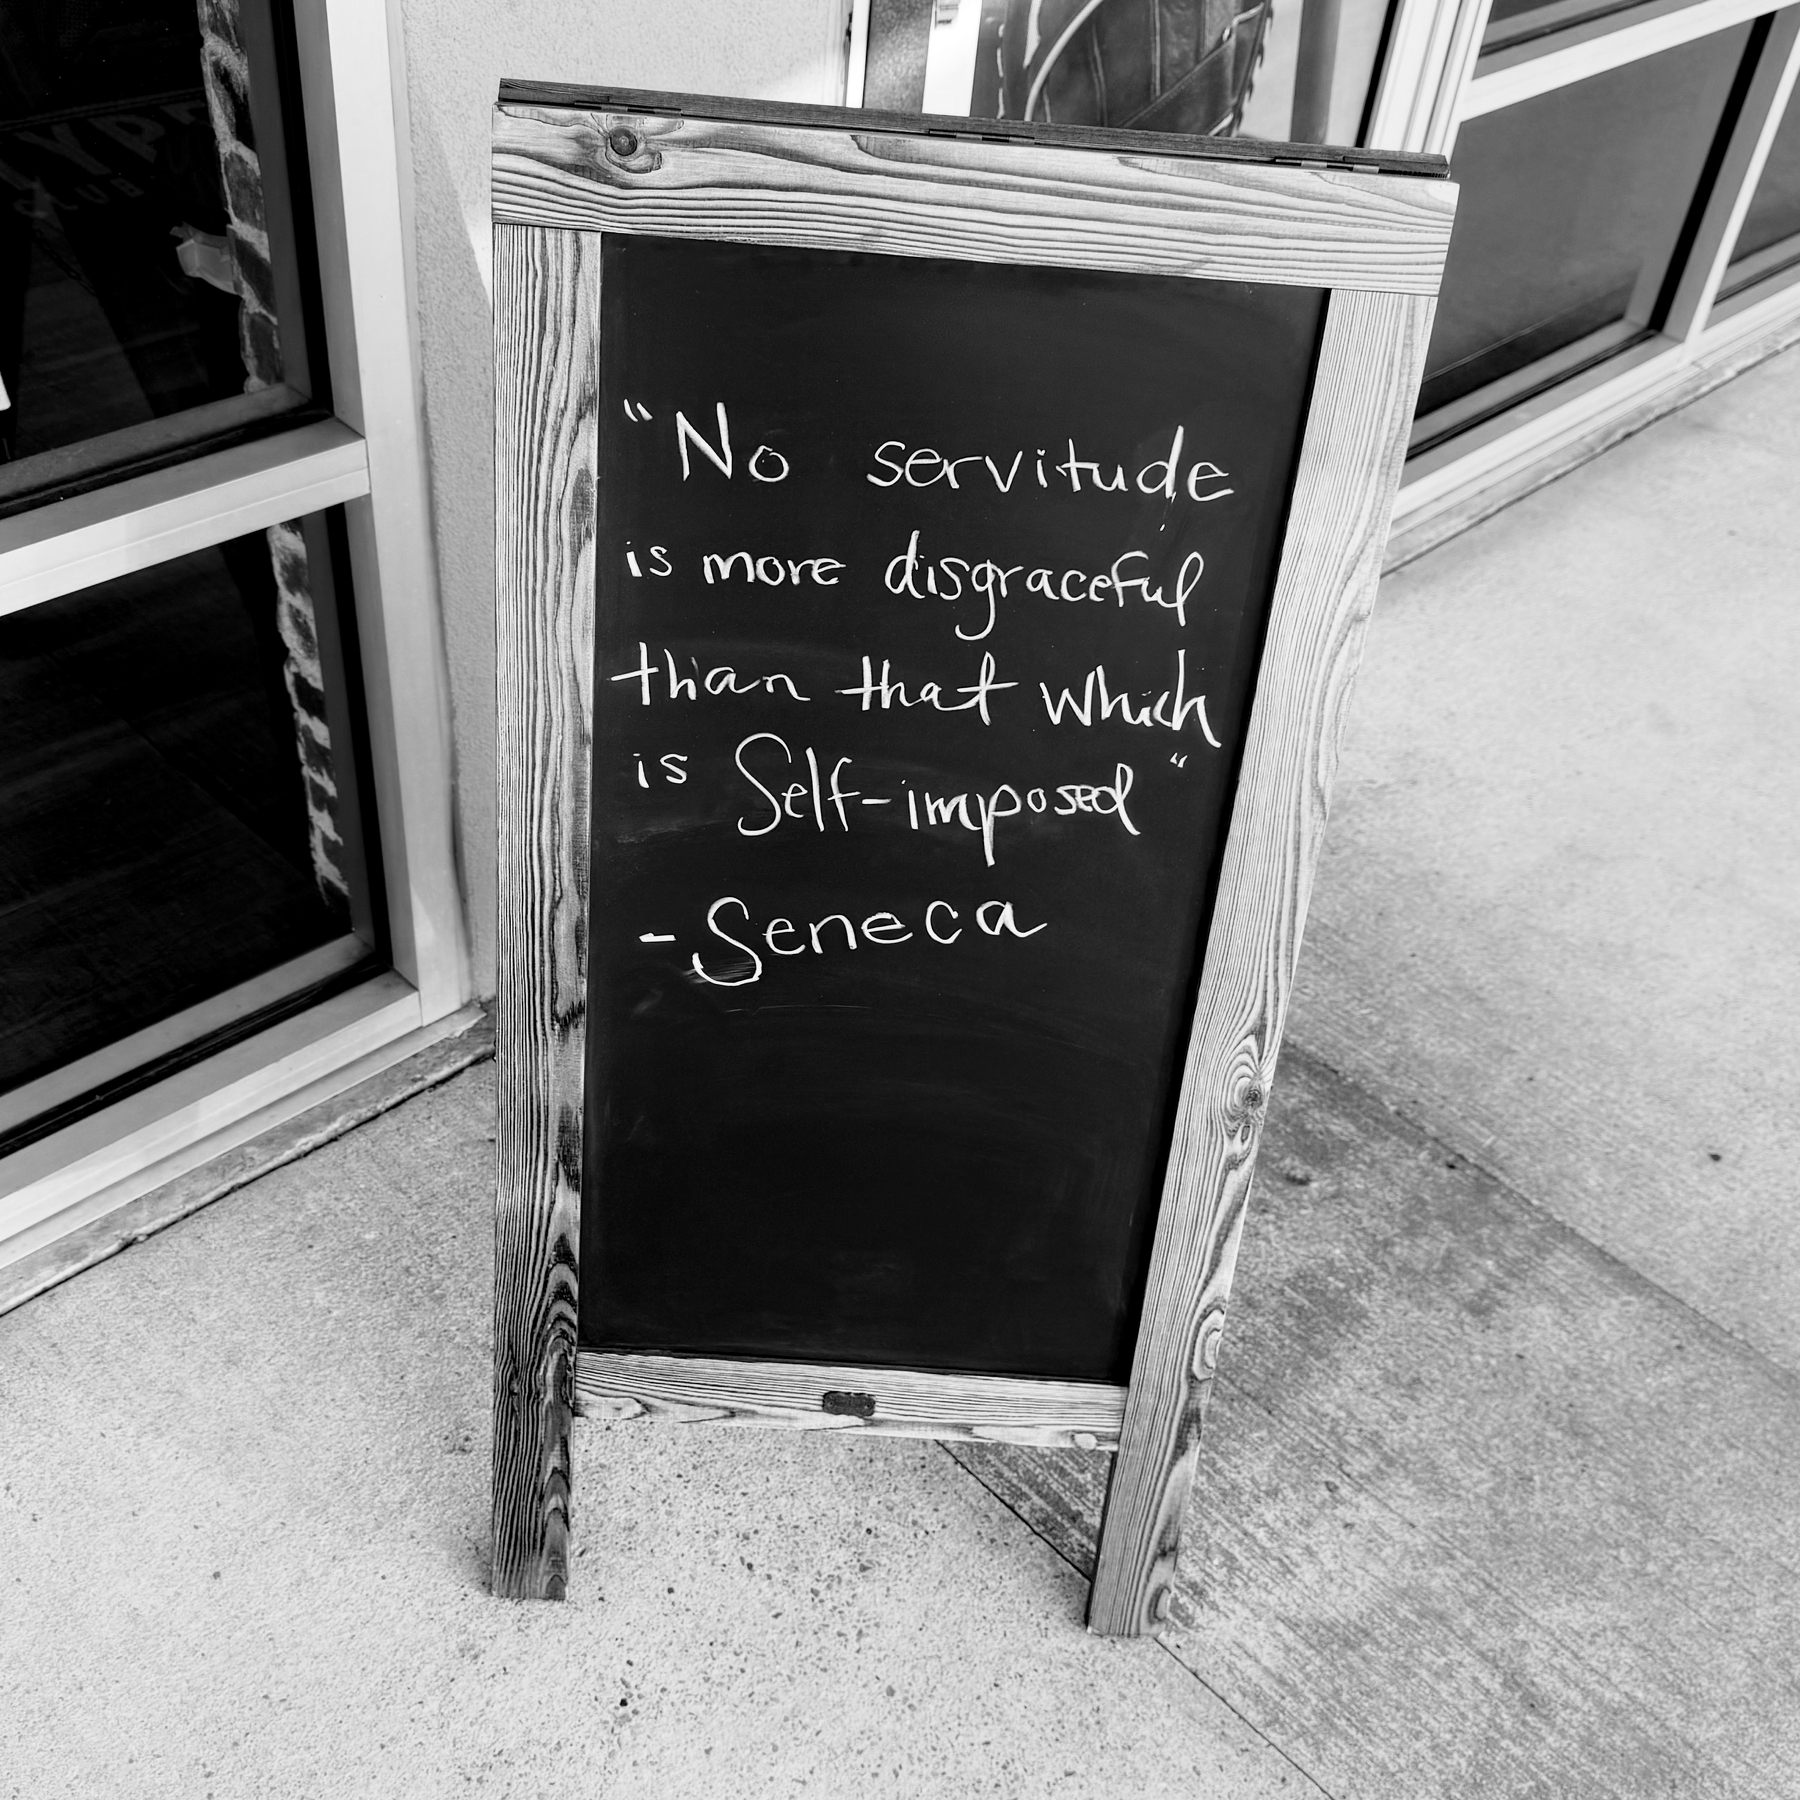 "No servitude
is more disgraceful
than that which
is Self-imposed"
-Seneca